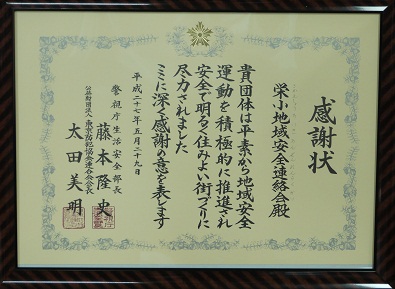 感謝状
栄小地域安全連絡会殿
貴団体は平素から地域安全
運動を積極的に推進され
安全で明るく住みよい街づくりに
尽力されました
ここに深く感謝の意を表します
平成二十七年五月二十九日
警視庁生活安全部長
藤本隆史
公益財団法人 東京防犯協会連合会会長
太田美明